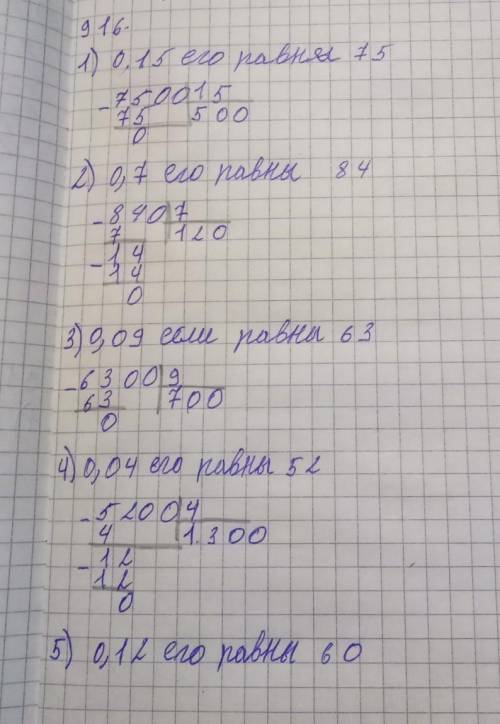 916.
1) 0,15 его равняя 75
- 7500 15
75 500
0
2) 0,7 его равны 84
- 840 7
7 120
- 14
14
0
3) 0,09 если равны 63
- 6300 9
63 700
0
4) 0,04 его равны 52
- 5200 4
4 1.300
- 12
12
0
5) 0,12 его равны 60